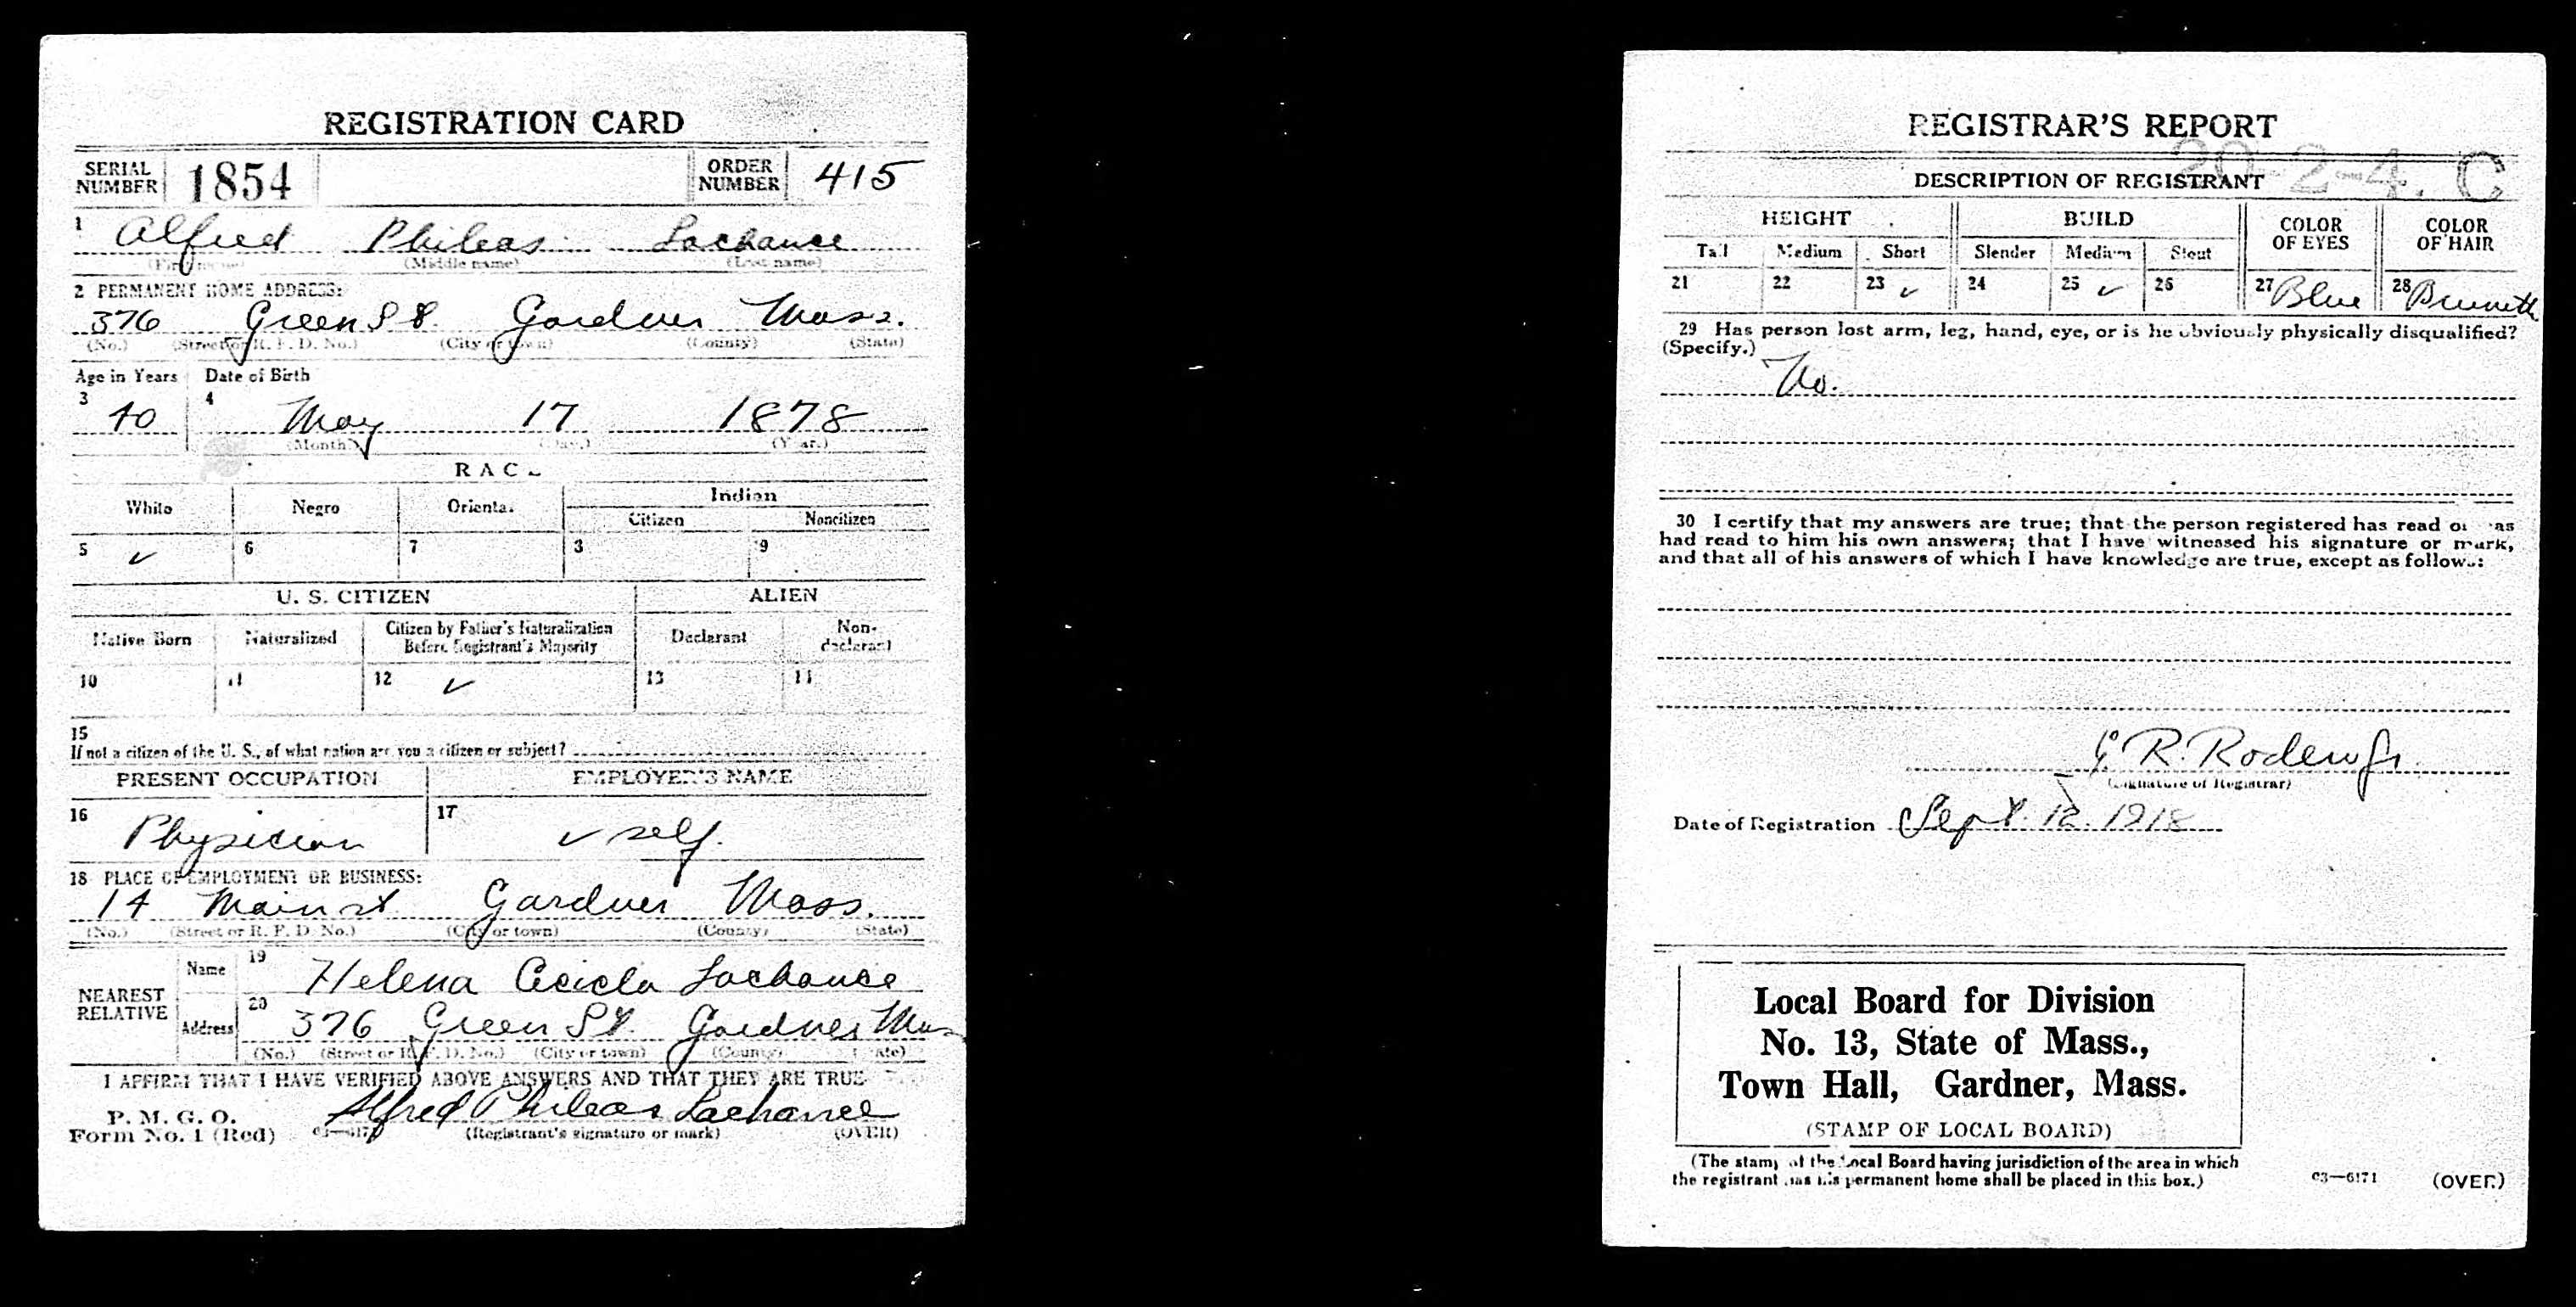 REGISTRATION CARD
SERIAL NUMBER 1854 ORDER NUMBER 415
1 Alfred Phileas Lachance
(First name) (Middle name) (Last name)
2 PERMANENT HOME ADDRESS:
376 Green St. Gardner Mass.
(No.) (Street or R. F. D. No.) (City or town) (County) (State)
Age in Years Date of Birth
3 40 4 May 17 1878
(Month) (Day.) (Year.)
RACE
White Negro Oriental Indian
Citizen Noncitizen
5 ✓ 6 7 8 9
U. S. CITIZEN ALIEN
Native Born Naturalized Citizen by Father's Naturalization Before Registrant's Majority Declarant Non-declarant
10 11 12 ✓ 13 14
15
If not a citizen of the U. S., of what nation are you a citizen or subject?
PRESENT OCCUPATION EMPLOYER'S NAME
16 Physician 17 ✓ self.
18 PLACE OF EMPLOYMENT OR BUSINESS:
14 Main st Gardner Mass.
(No.) (Street or R. F. D. No.) (City or town) (County) (State)
NEAREST RELATIVE
Name 19 Helena Lachance
Address 20 376 Green St. Gardner Mass
(No.) (Street or R. F. D. No.) (City or town) (County) (State)
I AFFIRM THAT I HAVE VERIFIED ABOVE ANSWERS AND THAT THEY ARE TRUE
P. M. G. O.
Form No. 1 (Red) Alfred Phileas Lachance
(Registrant's signature or mark) (OVER)
REGISTRAR'S REPORT
20 2 4. C
DESCRIPTION OF REGISTRANT
HEIGHT BUILD COLOR OF EYES COLOR OF HAIR
Tall Medium Short Slender Medium Stout
21 22 23 ✓ 24 25 ✓ 26 27 Blue 28
29 Has person lost arm, leg, hand, eye, or is he obviously physically disqualified?
(Specify.)
No.
30 I certify that my answers are true; that the person registered has read or has
had read to him his own answers; that I have witnessed his signature or mark,
and that all of his answers of which I have knowledge are true, except as follows:
R.
(Signature of Registrar)
Date of Registration Sept. 12. 1918
Local Board for Division
No. 13, State of Mass.,
Town Hall, Gardner, Mass.
(STAMP OF LOCAL BOARD)
(The stamp of the Local Board having jurisdiction of the area in which
the registrant has his permanent home shall be placed in this box.)
03—6171 (OVER)